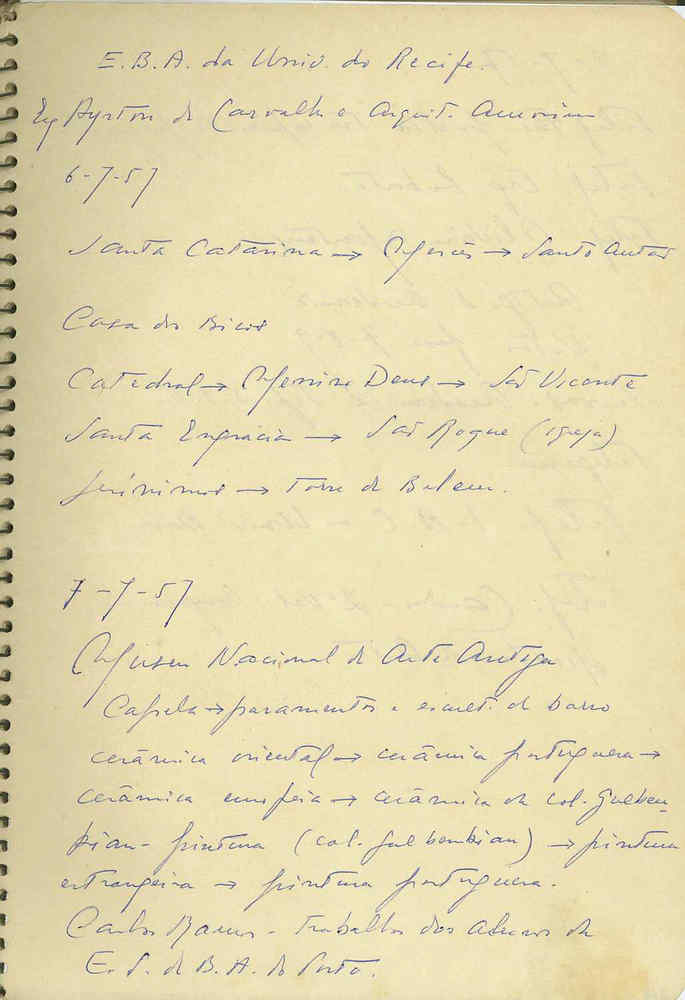 E. B. A. da Univ. do Recife.
Eng Ayrton de Carvalho e Arquit. Amorim
6-7-57
Santa Catarina → Mercês → Santo Antão
Casa dos Bicos
Catedral → Menino Deus → São Vicente
Santa Engrácia → São Roque (igreja)
Jerónimos → Torre de Belem.
7-7-57
Museu Nacional de Arte Antiga
Capela → paramentos e de barro
cerâmica oriental → cerâmica portuguesa →
cerâmica europeia → cerâmica da col. Gulben-
kian - pintura (col. Gulbenkian) → pintura
estrangeira → pintura portuguesa.
Carlos Ramos - trabalhos dos alunos da
E. S. de B. A. do Porto.